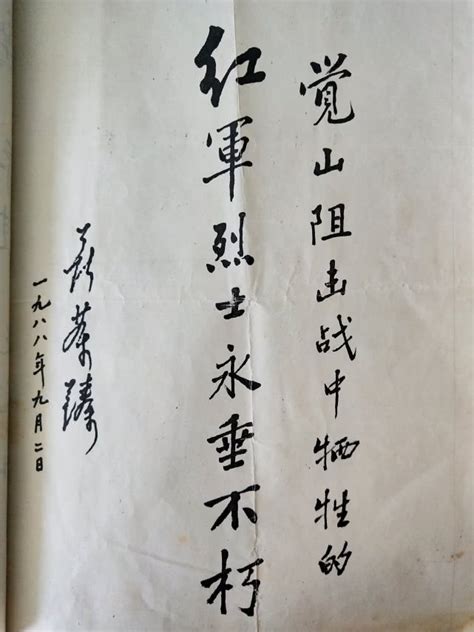 覚山阻击战中牺牲的
红軍烈士永垂不朽
聂荣臻
一九八八年九月二日